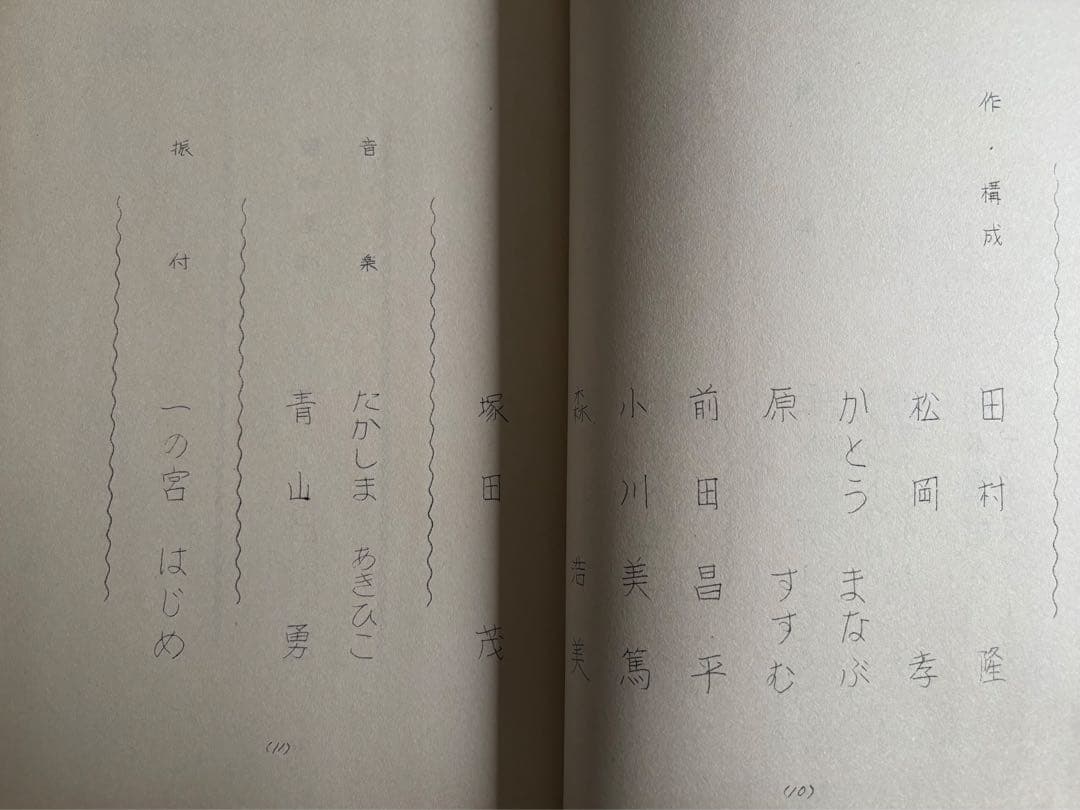 作・構成
田村 隆
松岡 孝
かとう まなぶ
原 すすむ
前田昌平
小川美篤
森 若美
(10)
塚田 茂
音楽
たかしま あきひこ
青山 勇
振付
一の宮 はじめ
(11)